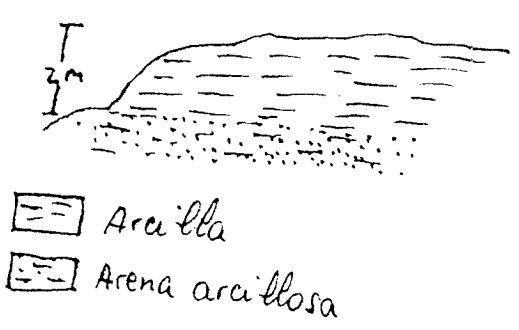 2 m
Arcilla
Arena arcillosa